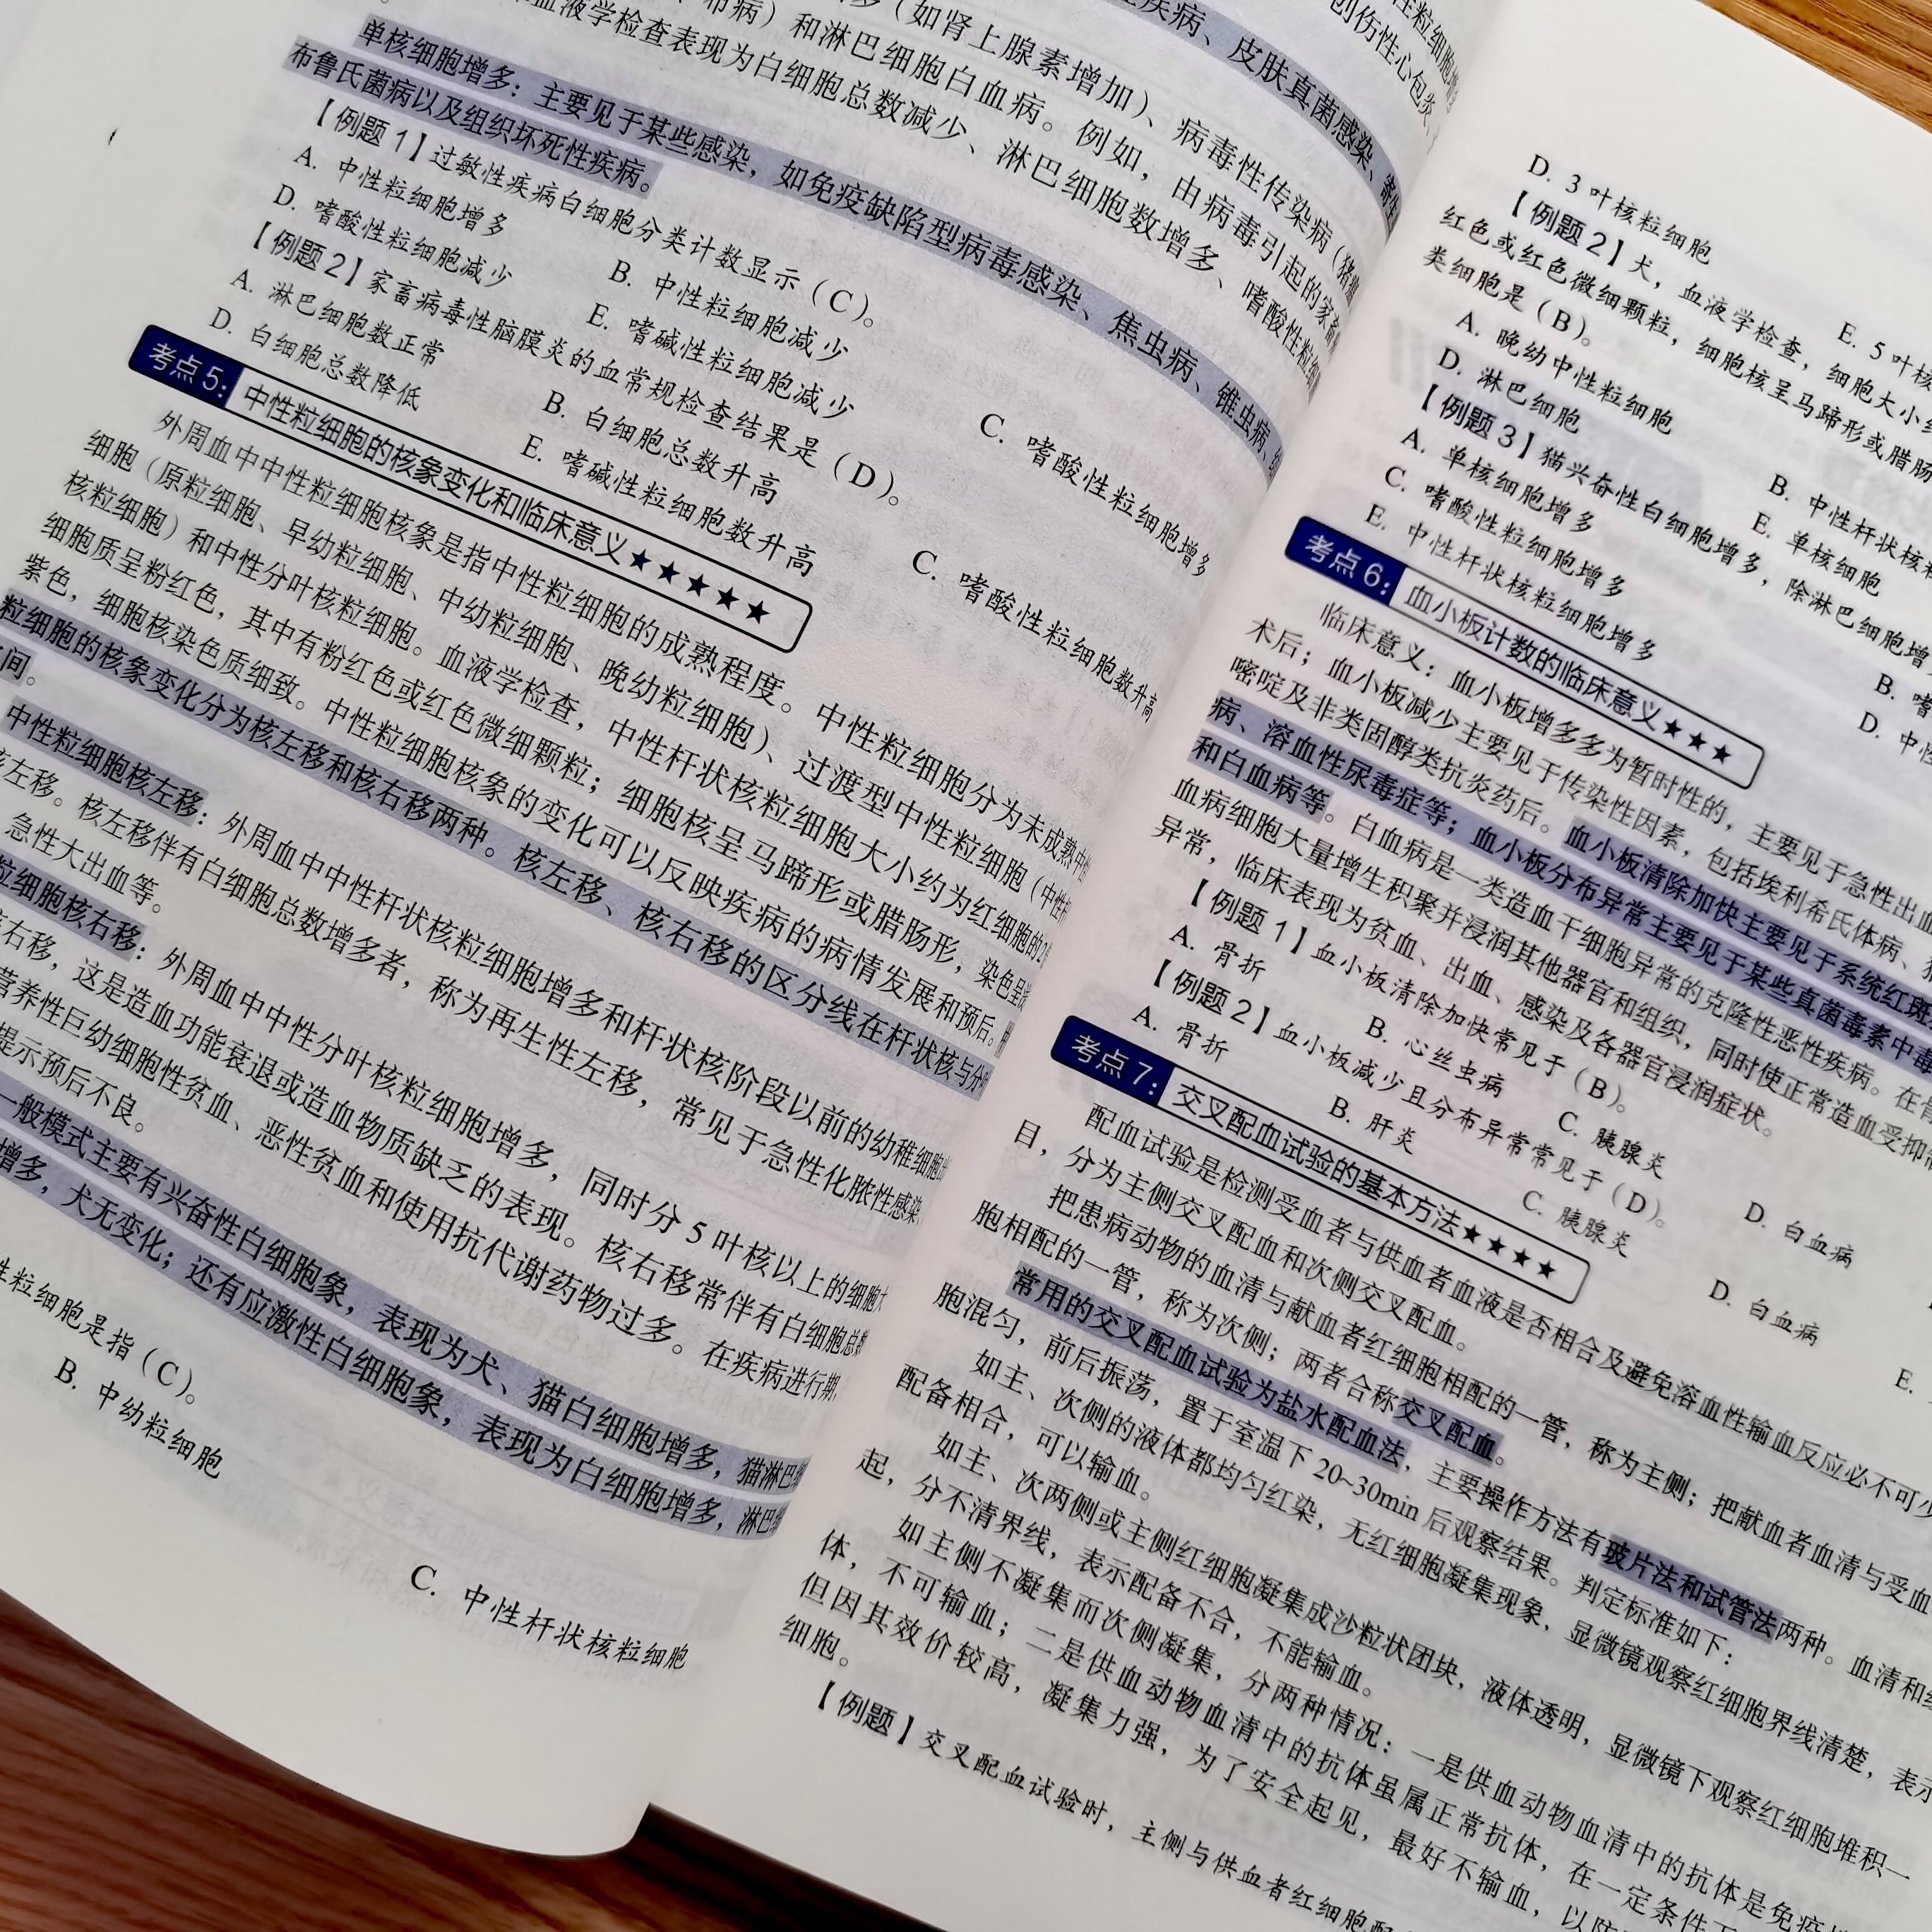 疾病、皮肤真菌感染、寄生
（如肾上腺素增加）、病毒性传染病（猪瘟
和淋巴细胞白血病。例如，由病毒引起的家畜
血液学检查表现为白细胞总数减少、淋巴细胞数增多、嗜酸性粒细
单核细胞增多：主要见于某些感染，如免疫缺陷型病毒感染、焦虫病、锥虫病、
布鲁氏菌病以及组织坏死性疾病。
【例题1】过敏性疾病白细胞分类计数显示（C）。
A. 中性粒细胞增多 B. 中性粒细胞减少 C. 嗜酸性粒细胞增多
D. 嗜酸性粒细胞减少 E. 嗜碱性粒细胞减少
【例题2】家畜病毒性脑膜炎的血常规检查结果是（D）。
A. 淋巴细胞数正常 B. 白细胞总数升高 C. 嗜酸性粒细胞数升高
D. 白细胞总数降低 E. 嗜碱性粒细胞数升高
考点5：中性粒细胞的核象变化和临床意义★★★★★
外周血中中性粒细胞核象是指中性粒细胞的成熟程度。中性粒细胞分为未成熟中性
细胞（原粒细胞、早幼粒细胞、中幼粒细胞、晚幼粒细胞）、过渡型中性粒细胞（中性杆
核粒细胞）和中性分叶核粒细胞。血液学检查，中性杆状核粒细胞大小约为红细胞的2
细胞质呈粉红色，其中有粉红色或红色微细颗粒；细胞核呈马蹄形或腊肠形，染色呈
紫色，细胞核染色质细致。中性粒细胞核象的变化可以反映疾病的病情发展和预后。
粒细胞的核象变化分为核左移和核右移两种。核左移、核右移的区分线在杆状核与分叶
间。
中性粒细胞核左移：外周血中中性杆状核粒细胞增多和杆状核阶段以前的幼稚细胞
核左移。核左移伴有白细胞总数增多者，称为再生性左移，常见于急性化脓性感染
急性大出血等。
粒细胞核右移：外周血中中性分叶核粒细胞增多，同时分5叶核以上的细胞
核右移，这是造血功能衰退或造血物质缺乏的表现。核右移常伴有白细胞总
营养性巨幼细胞性贫血、恶性贫血和使用抗代谢药物过多。在疾病进行期，
提示预后不良。
一般模式主要有兴奋性白细胞象，表现为犬、猫白细胞增多，猫淋巴
增多，犬无变化；还有应激性白细胞象，表现为白细胞增多，淋巴
性粒细胞是指（C）。
B. 中幼粒细胞 C. 中性杆状核粒细胞
性粒细胞
创伤性心包炎、
D. 3叶核粒细胞 E. 5叶核
【例题2】犬，血液学检查，细胞大小
红色或红色微细颗粒，细胞核呈马蹄形或腊肠
类细胞是（B）。
A. 晚幼中性粒细胞 B. 中性杆状核
D. 淋巴细胞 E. 单核细胞
【例题3】猫兴奋性白细胞增多，除淋巴细胞增
A. 单核细胞增多 B. 嗜
C. 嗜酸性粒细胞增多 D. 中性
E. 中性杆状核粒细胞增多
考点6：血小板计数的临床意义★★★
临床意义：血小板增多多为暂时性的，主要见于急性出血
术后；血小板减少主要见于传染性因素，包括埃利希氏体病、
嘧啶及非类固醇类抗炎药后。血小板清除加快主要见于系统红斑
病、溶血性尿毒症等；血小板分布异常主要见于某些真菌毒素中毒
和白血病等。白血病是一类造血干细胞异常的克隆性恶性疾病。在
血病细胞大量增生积聚并浸润其他器官和组织，同时使正常造血受抑
异常，临床表现为贫血、出血、感染及各器官浸润症状。
【例题1】血小板清除加快常见于（B）。
A. 骨折 B. 心丝虫病 C. 胰腺炎 D. 白血病 E.
【例题2】血小板减少且分布异常常见于（D）。
A. 骨折 B. 肝炎 C. 胰腺炎 D. 白血病
考点7：交叉配血试验的基本方法★★★★
配血试验是检测受血者与供血者血液是否相合及避免溶血性输血反应必不可少
目，分为主侧交叉配血和次侧交叉配血。
把患病动物的血清与献血者红细胞相配的一管，称为主侧；把献血者血清与受血
胞相配的一管，称为次侧；两者合称交叉配血。
常用的交叉配血试验为盐水配血法，主要操作方法有玻片法和试管法两种。血清和
胞混匀，前后振荡，置于室温下20~30min后观察结果。判定标准如下：
如主、次侧的液体都均匀红染，无红细胞凝集现象，显微镜观察红细胞界线清楚，表示
配备相合，可以输血。
如主、次两侧或主侧红细胞凝集成沙粒状团块，液体透明，显微镜下观察红细胞堆积一
起，分不清界线，表示配备不合，不能输血。
如主侧不凝集而次侧凝集，分两种情况：一是供血动物血清中的抗体是免疫
体，不可输血；二是供血动物血清中的抗体虽属正常抗体，在一定条件
但因其效价较高，凝集力强，为了安全起见，最好不输血，以防
细胞。
【例题】交叉配血试验时，主侧与供血者红细胞